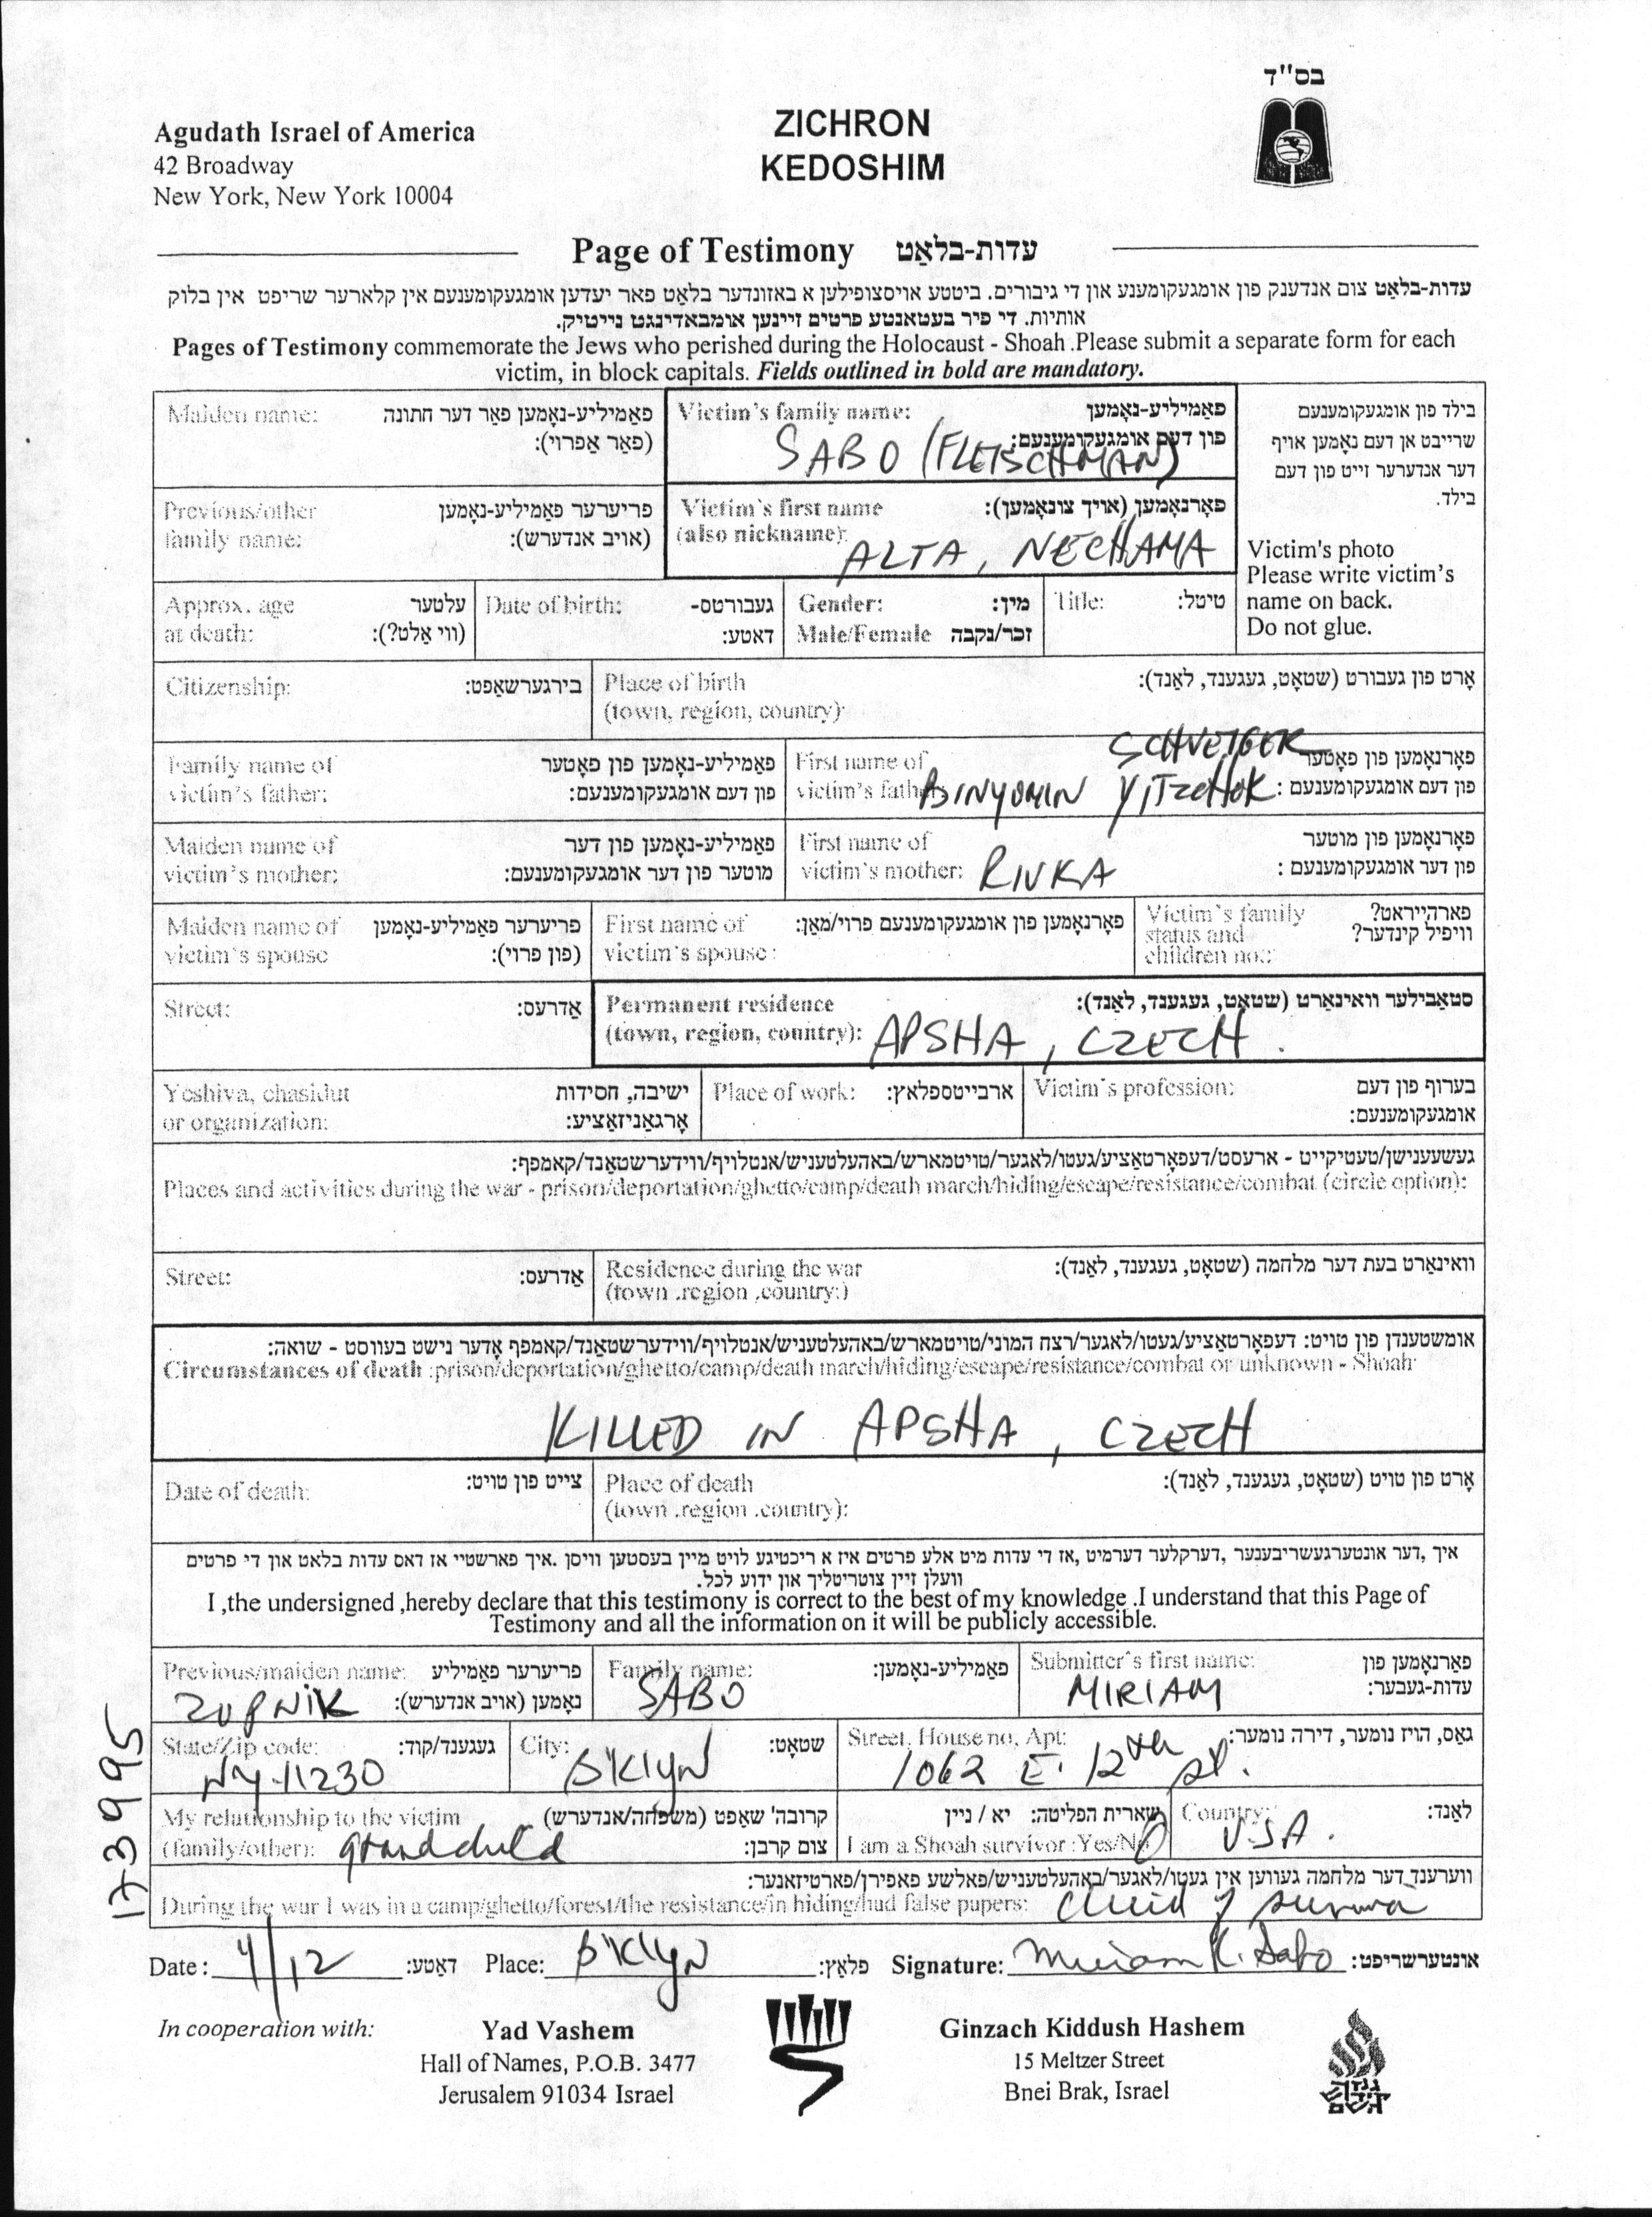 בס"ד
Agudath Israel of America
42 Broadway
New York, New York 10004
ZICHRON
KEDOSHIM
Page of Testimony עדות-בלאַט
עדות-בלאַט צום אנדענק פון אומגעקומענע און די גיבורים. ביטטע אויסצופילען א באזונדער בלאַט פאר יעדען אומגעקומענעם אין קלארער שריפט אין בלוק
אותיות. די פיר בעטאנטע פרטים זיינען אומבאדינגט נייטיק.
Pages of Testimony commemorate the Jews who perished during the Holocaust - Shoah .Please submit a separate form for each
victim, in block capitals. Fields outlined in bold are mandatory.
Maiden name: פאַמיליע-נאָמען פאַר דער חתונה
(פאַר אַפרוי):
Victim's family name: פאַמיליע-נאָמען
פון דעם אומגעקומענעם:
SABO (FLEISCHMAN)
בילד פון אומגעקומענעם
שרייבט אן דעם נאָמען אויף
דער אנדערער זייט פון דעם
בילד.
Victim's photo
Please write victim's
name on back.
Do not glue.
Previous/other פריערער פאַמיליע-נאָמען
family name: (אויב אנדערש):
Victim's first name פאָרנאָמען (אויך צונאָמען):
(also nickname):
ALTA, NECHAMA
Approx. age עלטער
at death: (ווי אַלט?):
Date of birth: געבורטס-
דאטע:
Gender: מין:
Male/Female זכר/נקבה
Title: טיטל:
Citizenship: בירגערשאַפט:
Place of birth אָרט פון געבורט (שטאָט, געגענד, לאַנד):
(town, region, country):
Family name of פאַמיליע-נאָמען פון פאָטער
victim's father: פון דעם אומגעקומענעם:
First name of פאָרנאָמען פון פאָטער
victim's father: פון דעם אומגעקומענעם:
SCHVEIGER
BINYOMIN YITZCHOK
Maiden name of פאַמיליע-נאָמען פון דער
victim's mother: מוטער פון דער אומגעקומענעם:
First name of פאָרנאָמען פון מוטער
victim's mother: RIVKA פון דער אומגעקומענעם :
Maiden name of פריערער פאַמיליע-נאָמען
victim's spouse (פון פרוי):
First name of פאָרנאָמען פון אומגעקומענעם פרוי/מאַן:
victim's spouse:
Victim's family פארהייראט?
status and וויפיל קינדער?
children no.:
Street: אַדרעס:
Permanent residence סטאַבילער וואינאָרט (שטאָט, געגענד, לאַנד):
(town, region, country): APSHA, CZECH.
Yeshiva, chasidut ישיבה, חסידות
or organization: אָרגאַניזאַציע:
Place of work: ארבייטספלאץ:
Victim's profession: בערוף פון דעם
אומגעקומענעם:
געשעענישן/טעטיקייט - ארעסט/דעפאָרטאַציע/געטו/לאגער/טויטמארש/באהעלטעניש/אנטלויף/ווידערשטאַנד/קאמפף:
Places and activities during the war - prison/deportation/ghetto/camp/death march/hiding/escape/resistance/combat (circle option):
Street: אַדרעס:
Residence during the war וואינאַרט בעת דער מלחמה (שטאָט, געגענד, לאַנד):
(town .region .country:)
אומשטענדן פון טויט: דעפאָרטאַציע/געטו/לאגער/רצח המוני/טויטמארש/באהעלטעניש/אנטלויף/ווידערשטאַנד/קאמפף אָדער נישט בעווסט - שואה:
Circumstances of death :prison/deportation/ghetto/camp/death march/hiding/escape/resistance/combat or unknown - Shoah:
KILLED IN APSHA, CZECH
Date of death: צייט פון טויט:
Place of death אָרט פון טויט (שטאָט, געגענד, לאַנד):
(town .region .country):
איך ,דער אונטערגעשריבענער ,דערקלער דערמיט ,אז די עדות מיט אלע פרטים איז א ריכטיגע לויט מיין בעסטען וויסן .איך פארשטיי אז דאס עדות בלאט און די פרטים
וועלן זיין צוטריטליך און ידוע לכל.
I ,the undersigned ,hereby declare that this testimony is correct to the best of my knowledge .I understand that this Page of
Testimony and all the information on it will be publicly accessible.
Previous/maiden name: פריערער פאַמיליע
ZUPNIK נאָמען (אויב אנדערש):
Family name: פאַמיליע-נאָמען:
SABO
Submitter's first name: פאַרנאָמען פון
MIRIAM עדות-געבער:
State/Zip code: געגענד/קוד:
NY-11230
City: שטאָט:
B'KlyN
Street, House no, Apt: גאַס, הויז נומער, דירה נומער:
1062 E. 12th st.
My relationship to the victim קרובה' שאַפט (משפחה/אנדערש)
(family/other): grandchild צום קרבן:
שארית הפליטה: יא / ניין
I am a Shoah survivor :Yes/No
Country: לאַנד:
USA.
ווערענד דער מלחמה געווען אין געטו/לאגער/באהעלטעניש/פאלשע פאפירן/פארטיזאנער:
During the war I was in a camp/ghetto/forest/the resistance/in hiding/had false papers: child of
Date: 4/12 דאַטע: Place: B'KlyN פלאַץ: Signature: Miriam K. Sabo אונטערשריפט:
173995
In cooperation with:
Yad Vashem
Hall of Names, P.O.B. 3477
Jerusalem 91034 Israel
Ginzach Kiddush Hashem
15 Meltzer Street
Bnei Brak, Israel
גנזך
קידוש
השם